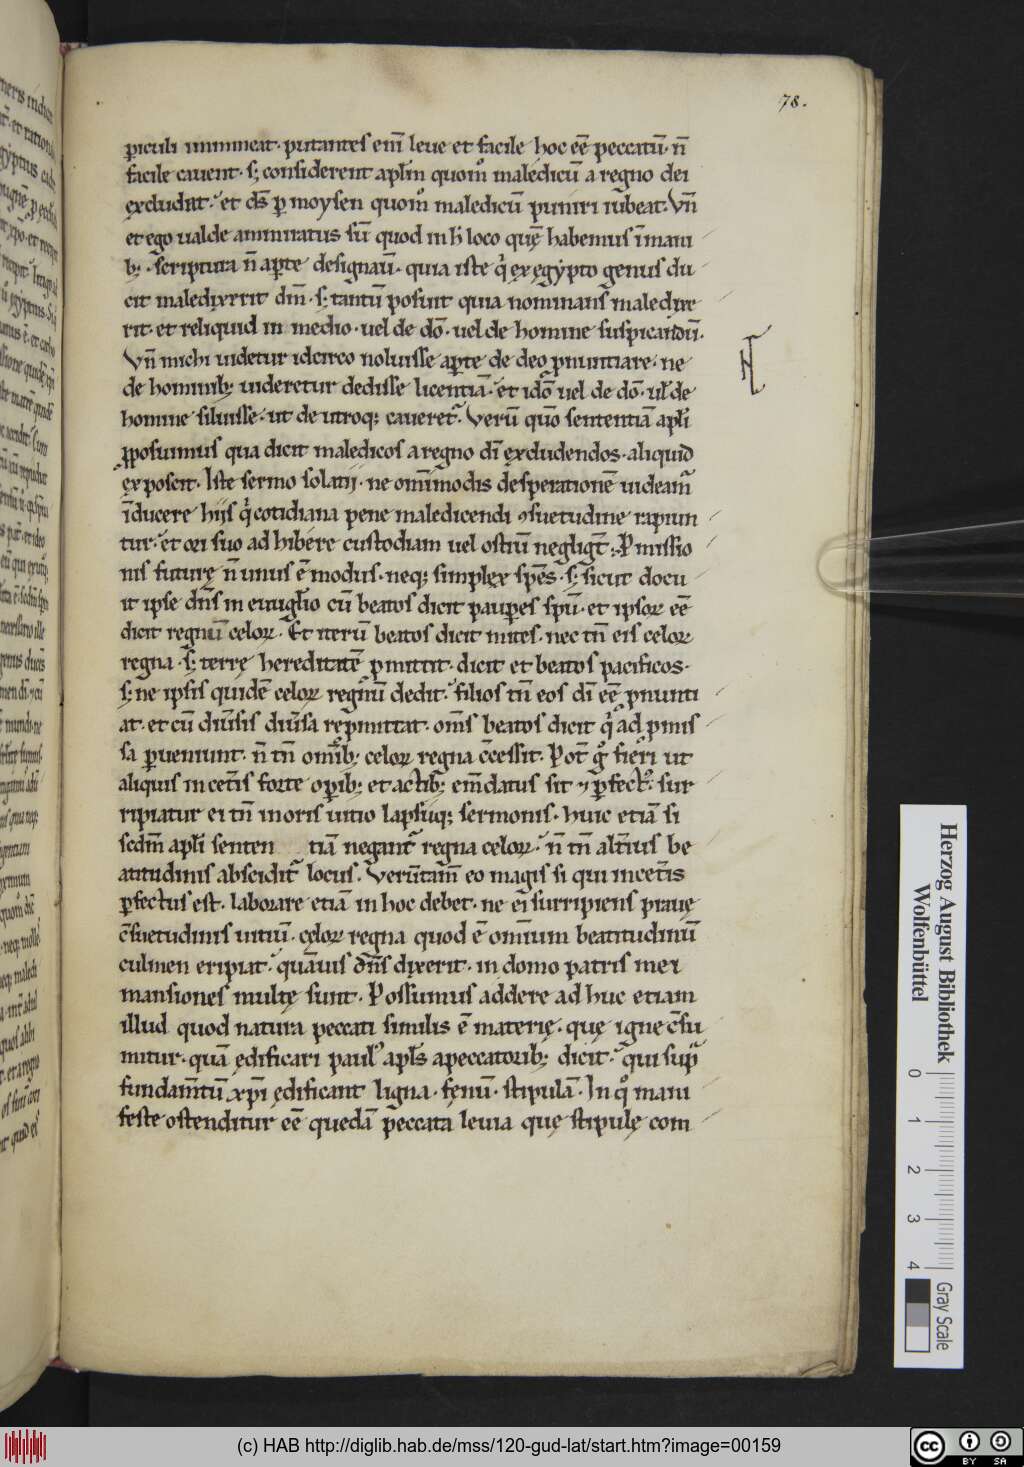 78.
ꝑiculi immineat. putantes eni᷎ leue et facile hoc ee̅ peccatu̅. n̅
facile cauent. s; considerent apl̅m quom̊ maledicu̅ a regno dei
excludat. et ds̅ ꝑ moysen quom̊ maledicu̅ puniri iubeat. Vn̅
et ego ualde ammiratus su̅ quod in h̅ loco quę̅ habemus i̅mani
b;. scriptura n̅ aꝑte designau̅. quia iste q̇ ex egypto genus du
cit maledixerit dm̅. s; tantu̅ posuit quia nominans maledixe
rit. et reliquid in medio. uel de do̅. uel de homine suspicandu̅.
Vn̅ michi uidetur idcirco noluisse aꝑte de deo p̅nuntiare. ne
de hominib; uideretur dedisse licentia̅. et ido̅ uel de do̅. ul̅ de
homine siluisse. ut de utroq; caueret᷑. Veru̅ quo̅ sententia̅ apl̅i
ꝓposuimus qua dicit maledicos a regno di̅ excludendos. aliquid
exposcit. Iste sermo solatij. ne omi̅modis desperatione̅ uideam᷑
i̅ducere hijs q̇ cotidiana pene maledicendi ꝯsuetudine rapiun
tur. et ori suo adhibere custodiam uel ostiu̅ negligt̅. P̲missio
nis futurę n̅ unus e̅ modus. neq; simplex spe̅s. s; sicut docu
it ipse dn̅s in euuglio̅ cu̅ beatos dicit pauꝑes spu̅. et ipsoꝝ ee̅
dicit regnu̅ celoꝝ. Et iteru̅ beatos dicit mites. nec tn̅ eis celoꝝ
regna. s; terrę hereditate̅ p̲mittit. dicit et beatos pacificos.
s; ne ipsis quide̅ celoꝝ regnu̅ dedit. filios tn̅ eos di̅ ee̅ p̅nunti
at. et cu̅ diu̅sis diu̅sa rep̲mittat. om̅s beatos dicit q̇ ad p̲mis
sa ꝑueniunt. n̅ tn̅ omi̅b; celoꝝ regna c̅cessit. Pot̅ g̊ fieri ut
aliquis in cet̅is forte oꝑib; et actib; em̅datus sit ꝯ ꝑfect᷒. sur
ripiatur ei tn̅ moris uitio lapsuq; sermonis. huic etia̅ si
scdm̅ apl̅i senten tia̅ negant᷑ regna celoꝝ. n̅ tn̅ alt̅ius be
atitudinis abscidit᷑ locus. Veru̅tam̅ eo magis si qui in cet̅is
ꝑfectus est. laborare etia̅ in hoc debet. ne ei surripiens prauę
c̅suetudinis uitiu̅. celoꝝ regna quod e̅ omnium beatitudinu̅
culmen eripiat. qua̅uis dn̅s dixerit. in domo patris mei
mansiones multę sunt. Possumus addere ad huc etiam
illud quod natura peccati similis e̅ materię. quę igne c̅su
mitur. qua̅ ędificari paul᷒ apl̅s a peccatorib; dicit. qui sup᷑
fundam̅tu̅ xp̅i ędificant ligna. fenu̅. stipula̅. In q̊ mani
feste ostenditur ee̅ queda̅ peccata leuia quę stipulę com
Herzog August Bibliothek
Wolfenbüttel
0 1 2 3 4
Gray Scale
(c) HAB http://diglib.hab.de/mss/120-gud-lat/start.htm?image=00159
cc BY SA